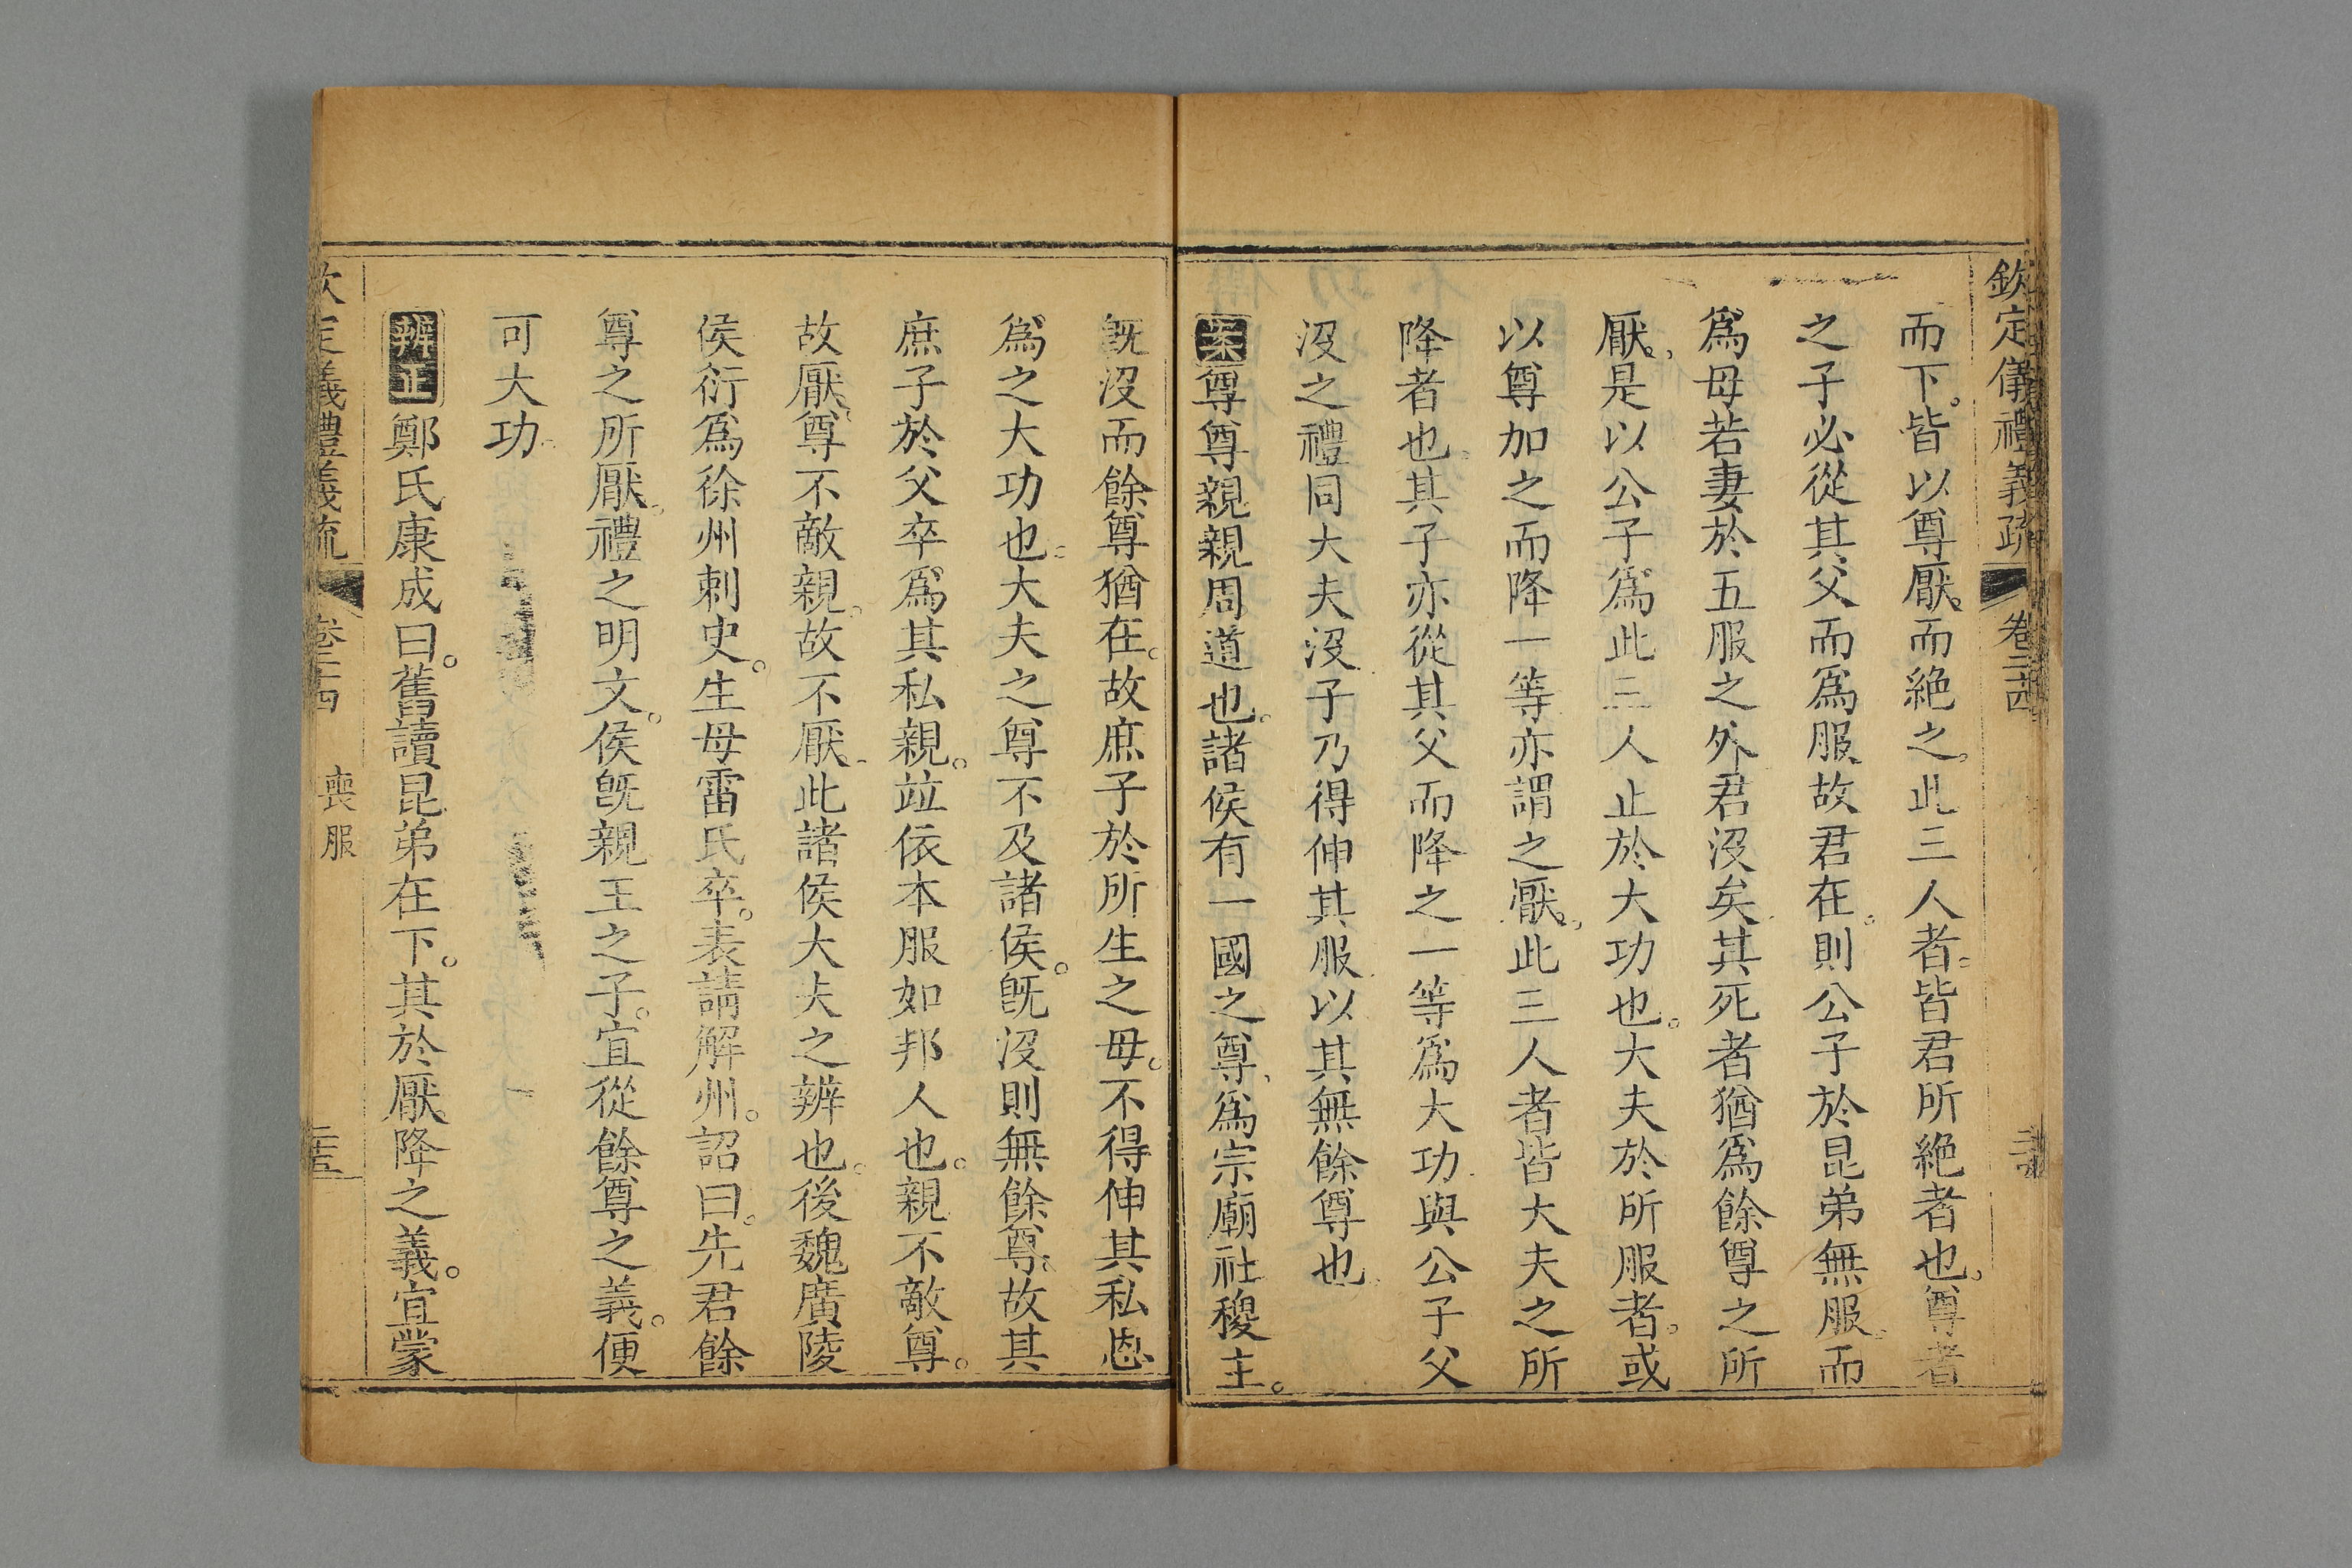 欽定儀禮義疏 卷二十四
而下。皆以尊厭而絶之。此三人者。皆君所絶者也。尊者
之子必從其父而爲服故君在。則公子於昆弟無服。而
爲母若妻於五服之外君沒矣其死者猶爲餘尊之所
厭。是以公子爲此三人止於大功也。大夫於所服者。或
以尊加之而降一等亦謂之厭。此三人者皆大夫之所
降者也。其子亦從其父而降之一等爲大功與公子父
沒之禮同大夫沒子乃得伸其服以其無餘尊也
案尊尊親親周道也。諸侯有一國之尊、爲宗廟社稷主。
旣沒而餘尊猶在。故庶子於所生之母。不得伸其私恩
爲之大功也。大夫之尊不及諸侯。旣沒則無餘尊。故其
庶子於父卒爲其私親。竝依本服如邦人也。親不敵尊。
故厭。尊不敵親。故不厭。此諸侯大夫之辨也。後魏廣陵
侯衍爲徐州刺史。生母雷氏卒。表請解州。詔曰。先君餘
尊之所厭。禮之明文。侯旣親王之子。宜從餘尊之義。便
可大功。
辨正鄭氏康成曰。舊讀昆弟在下。其於厭降之義。宜蒙
欽定儀禮義疏 卷二十四 喪服 三五